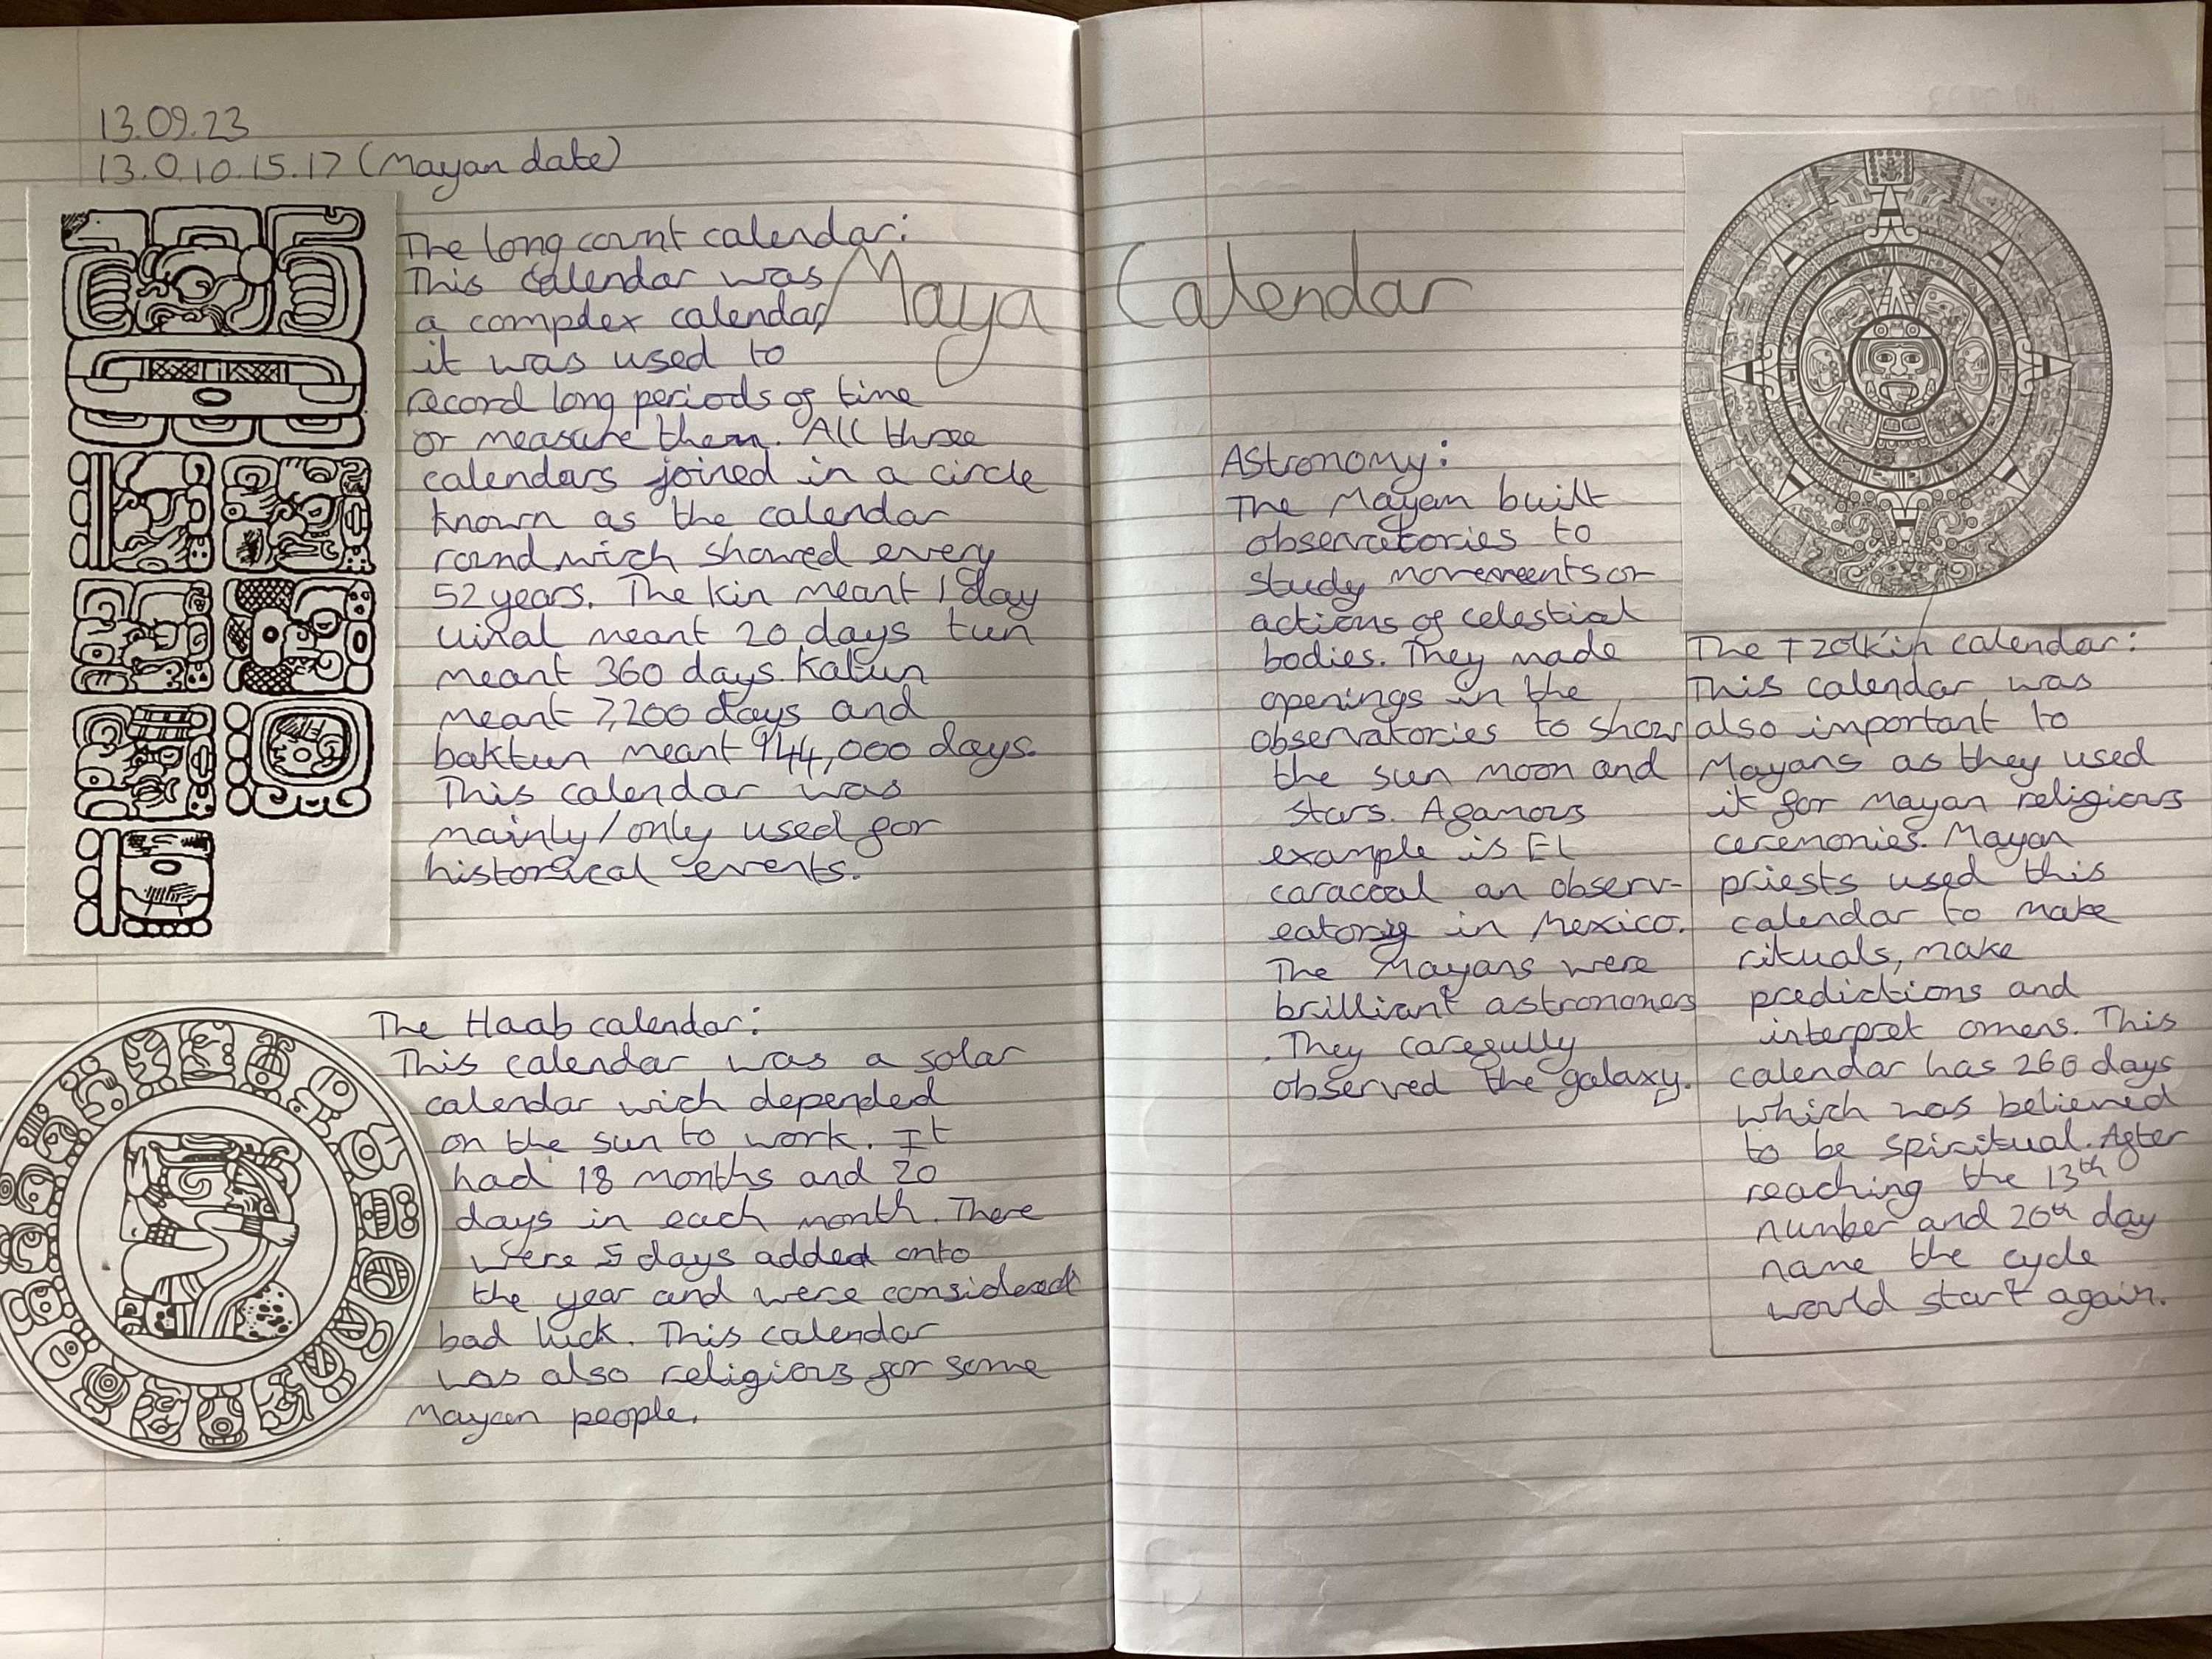 13.09.23
13.0.10.15.17 (Mayan date)
Maya Calendar
The long count calendar:
This calendar was
a complex calendar
it was used to
record long periods of time
or measure them. All three
calendars joined in a circle
known as the calendar
round wich showed every
52 years. The kin meant 1 day
uinal meant 20 days tun
meant 360 days. Katun
meant 7,200 days and
baktun meant 144,000 days.
This calendar was
mainly/only used for
historical events.
The Haab calendar:
This calendar was a solar
calendar wich depended
on the sun to work. It
had 18 months and 20
days in each month. There
were 5 days added onto
the year and were considered
bad luck. This calendar
was also religious for some
Mayan people.
Astronomy:
The Mayan built
observatories to
study movements or
actions of celestial
bodies. They made
openings in the
observatories to show
the sun moon and
stars. A famous
example is El
caracoal an observ-
eatory in Mexico.
The Mayans were
brilliant astronomers
. They carefully
observed the galaxy.
The Tzolkin calendar:
This calendar was
also important to
Mayans as they used
it for Mayan religious
ceremonies. Mayan
priests used this
calendar to make
rituals, make
predictions and
interpret omens. This
calendar has 260 days
which was believed
to be spiritual. After
reaching the 13th
number and 20th day
name the cycle
would start again.